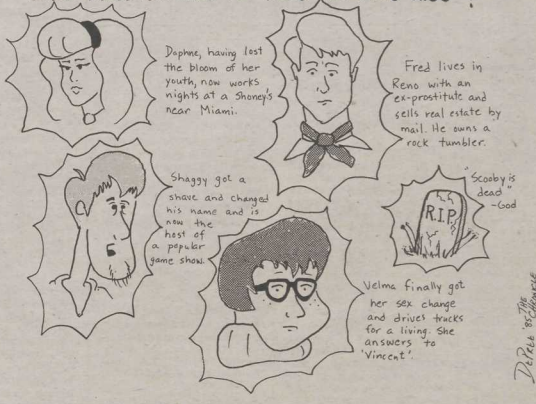 Daphne, having lost
the bloom of her
youth, now works
nights at a Shoney's
near Miami.
Fred lives in
Reno with an
ex-prostitute and
sells real estate by
mail. He owns a
rock tumbler.
Shaggy got a
shave and changed
his name and is
now the
host of
a popular
game show.
"Scooby is
dead"
-God
R.I.P.
Velma finally got
her sex change
and drives trucks
for a living. She
answers to
'Vincent'.
'85 THE
CHRONICLE